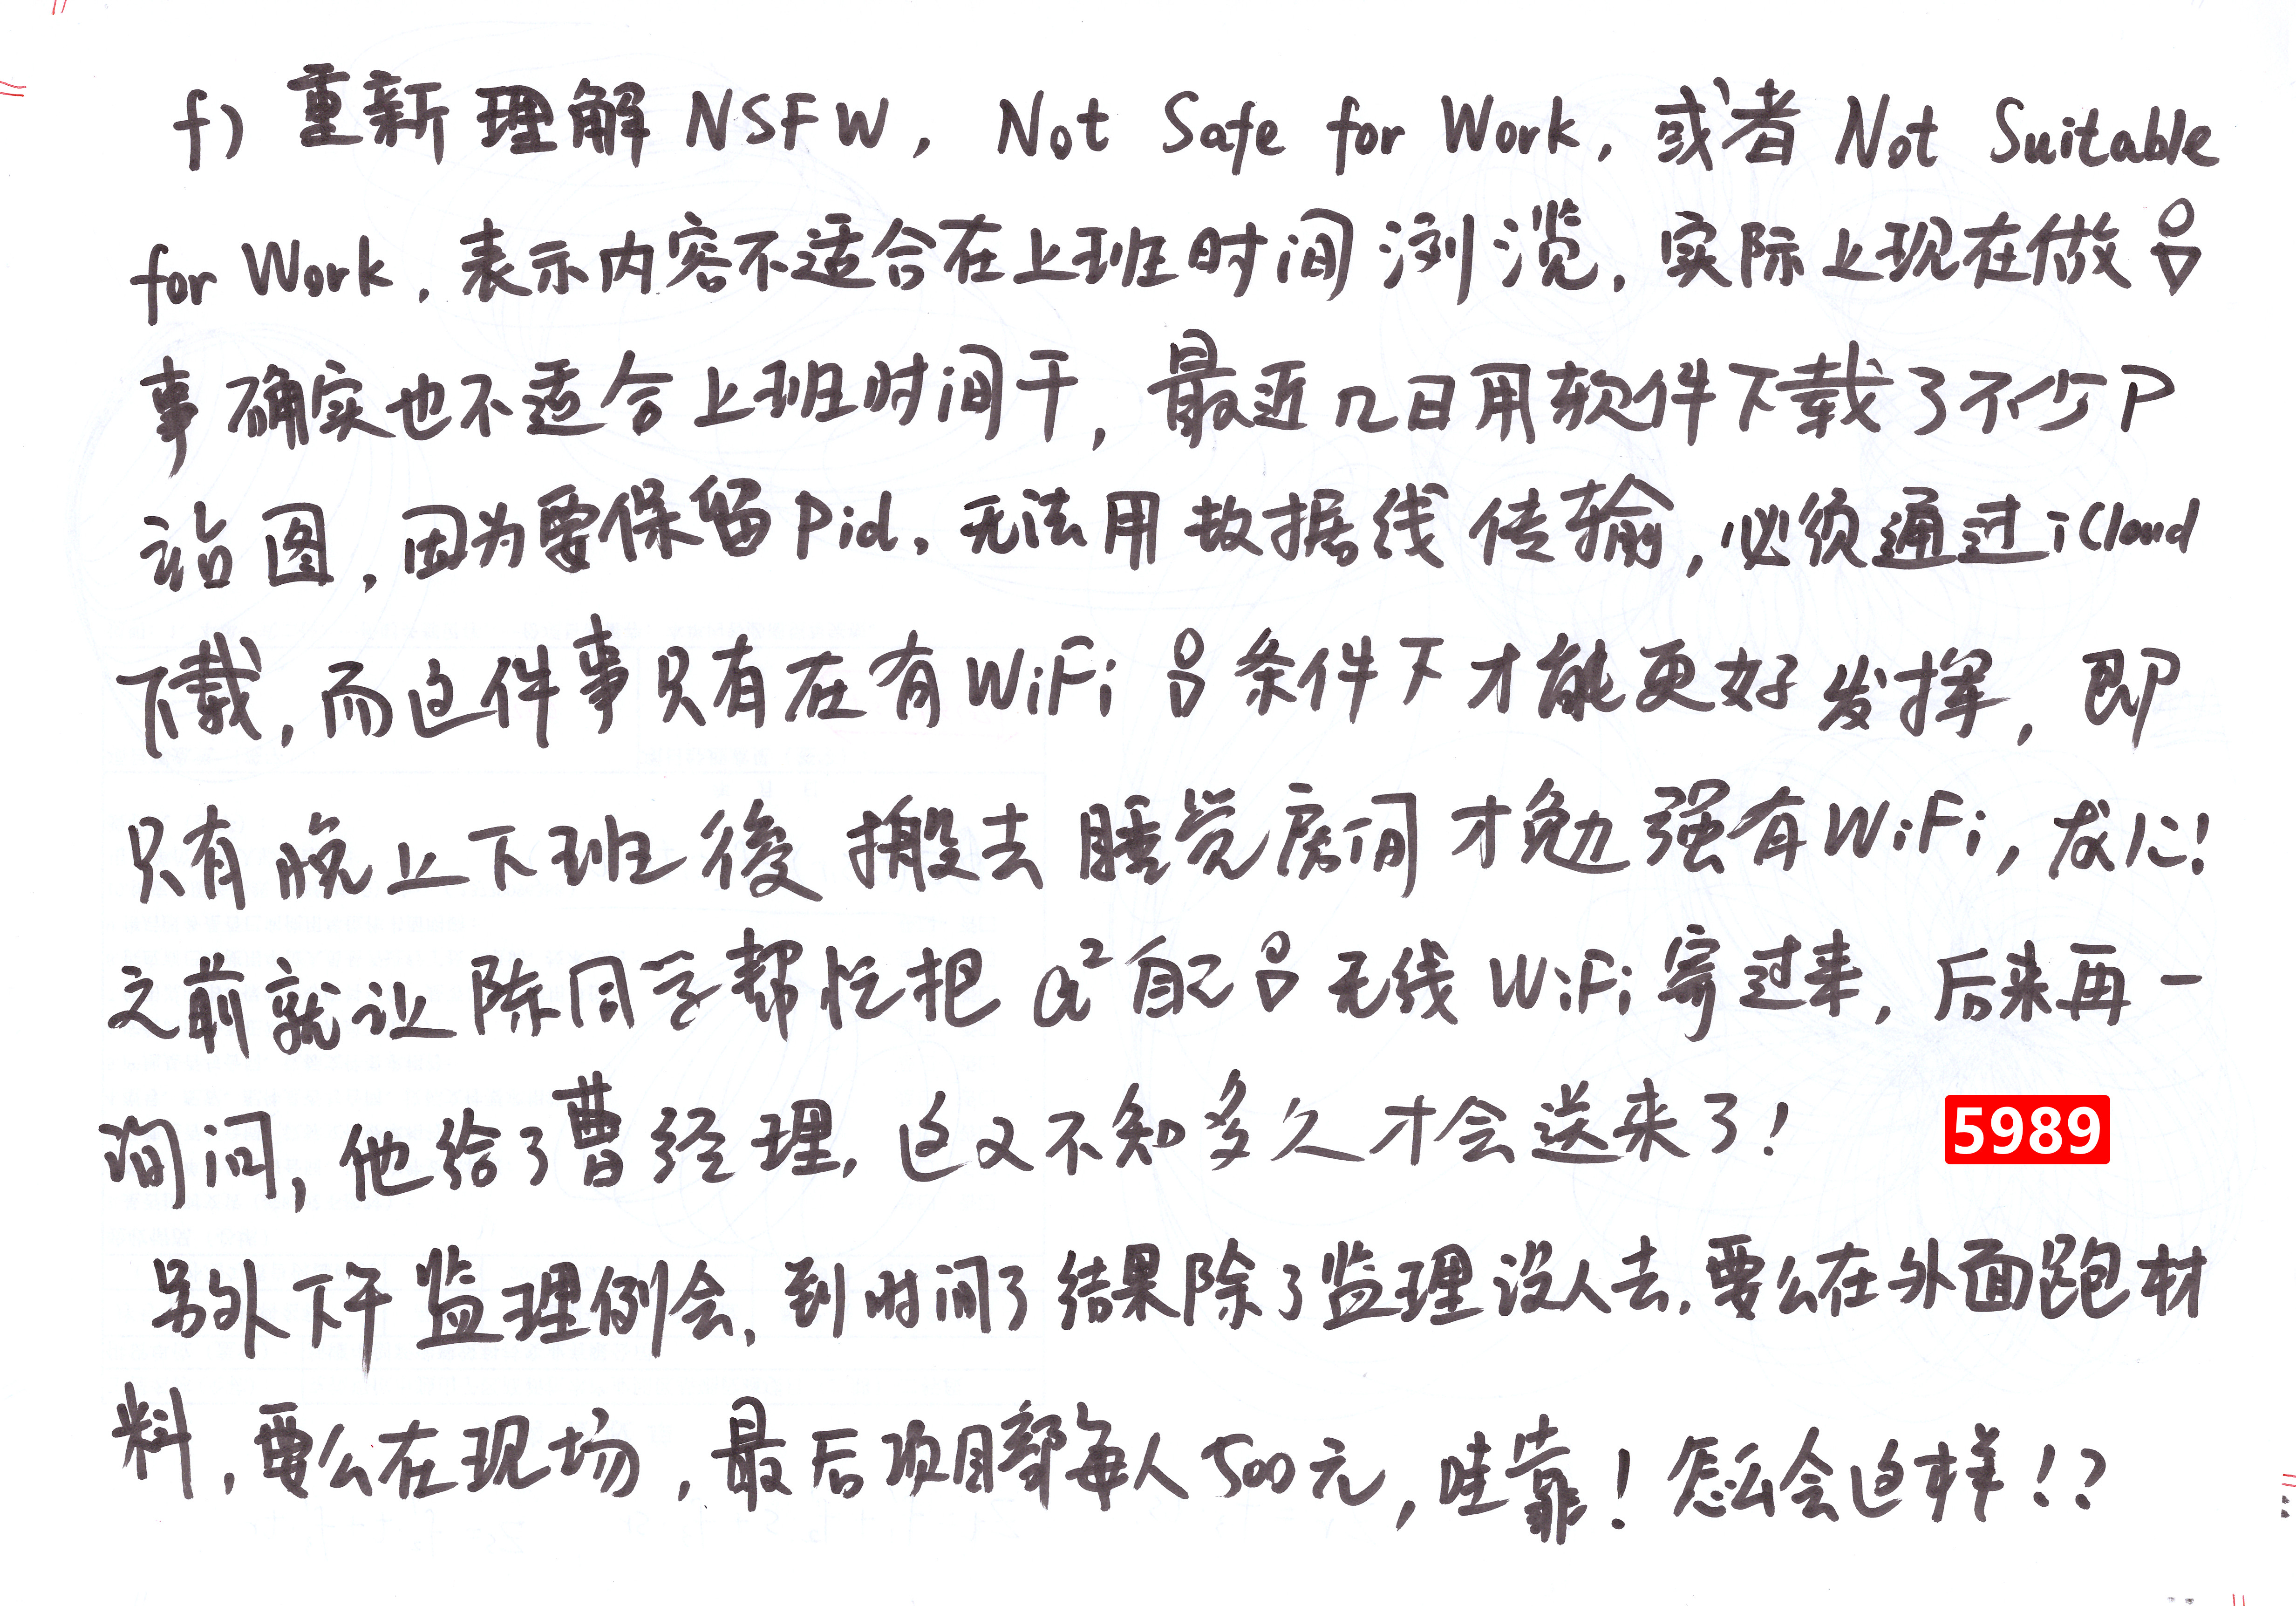 f) 重新理解 NSFW, Not Safe for Work, 或者 Not Suitable
for Work, 表示内容不适合在上班时间浏览, 实际上现在做
事确实也不适合上班时间干, 最近几日用软件下载了不少P
站图, 因为要保留Pid, 无法用数据线传输, 必须通过iCloud
下载, 而这件事只有在有WiFi 条件下才能更好发挥, 即
只有晚上下班後搬去睡觉房间才勉强有WiFi,
之前就让陈同学帮忙把 a² 自己 无线WiFi寄过来, 后来再一
询问, 他给了曹经理, 这又不知多久才会送来了!
5989
另外下午监理例会, 到时间了结果除了监理没人去, 要么在外面跑材
料, 要么在现场, 最后项目部每人500元, 哇靠! 怎么会这样!?